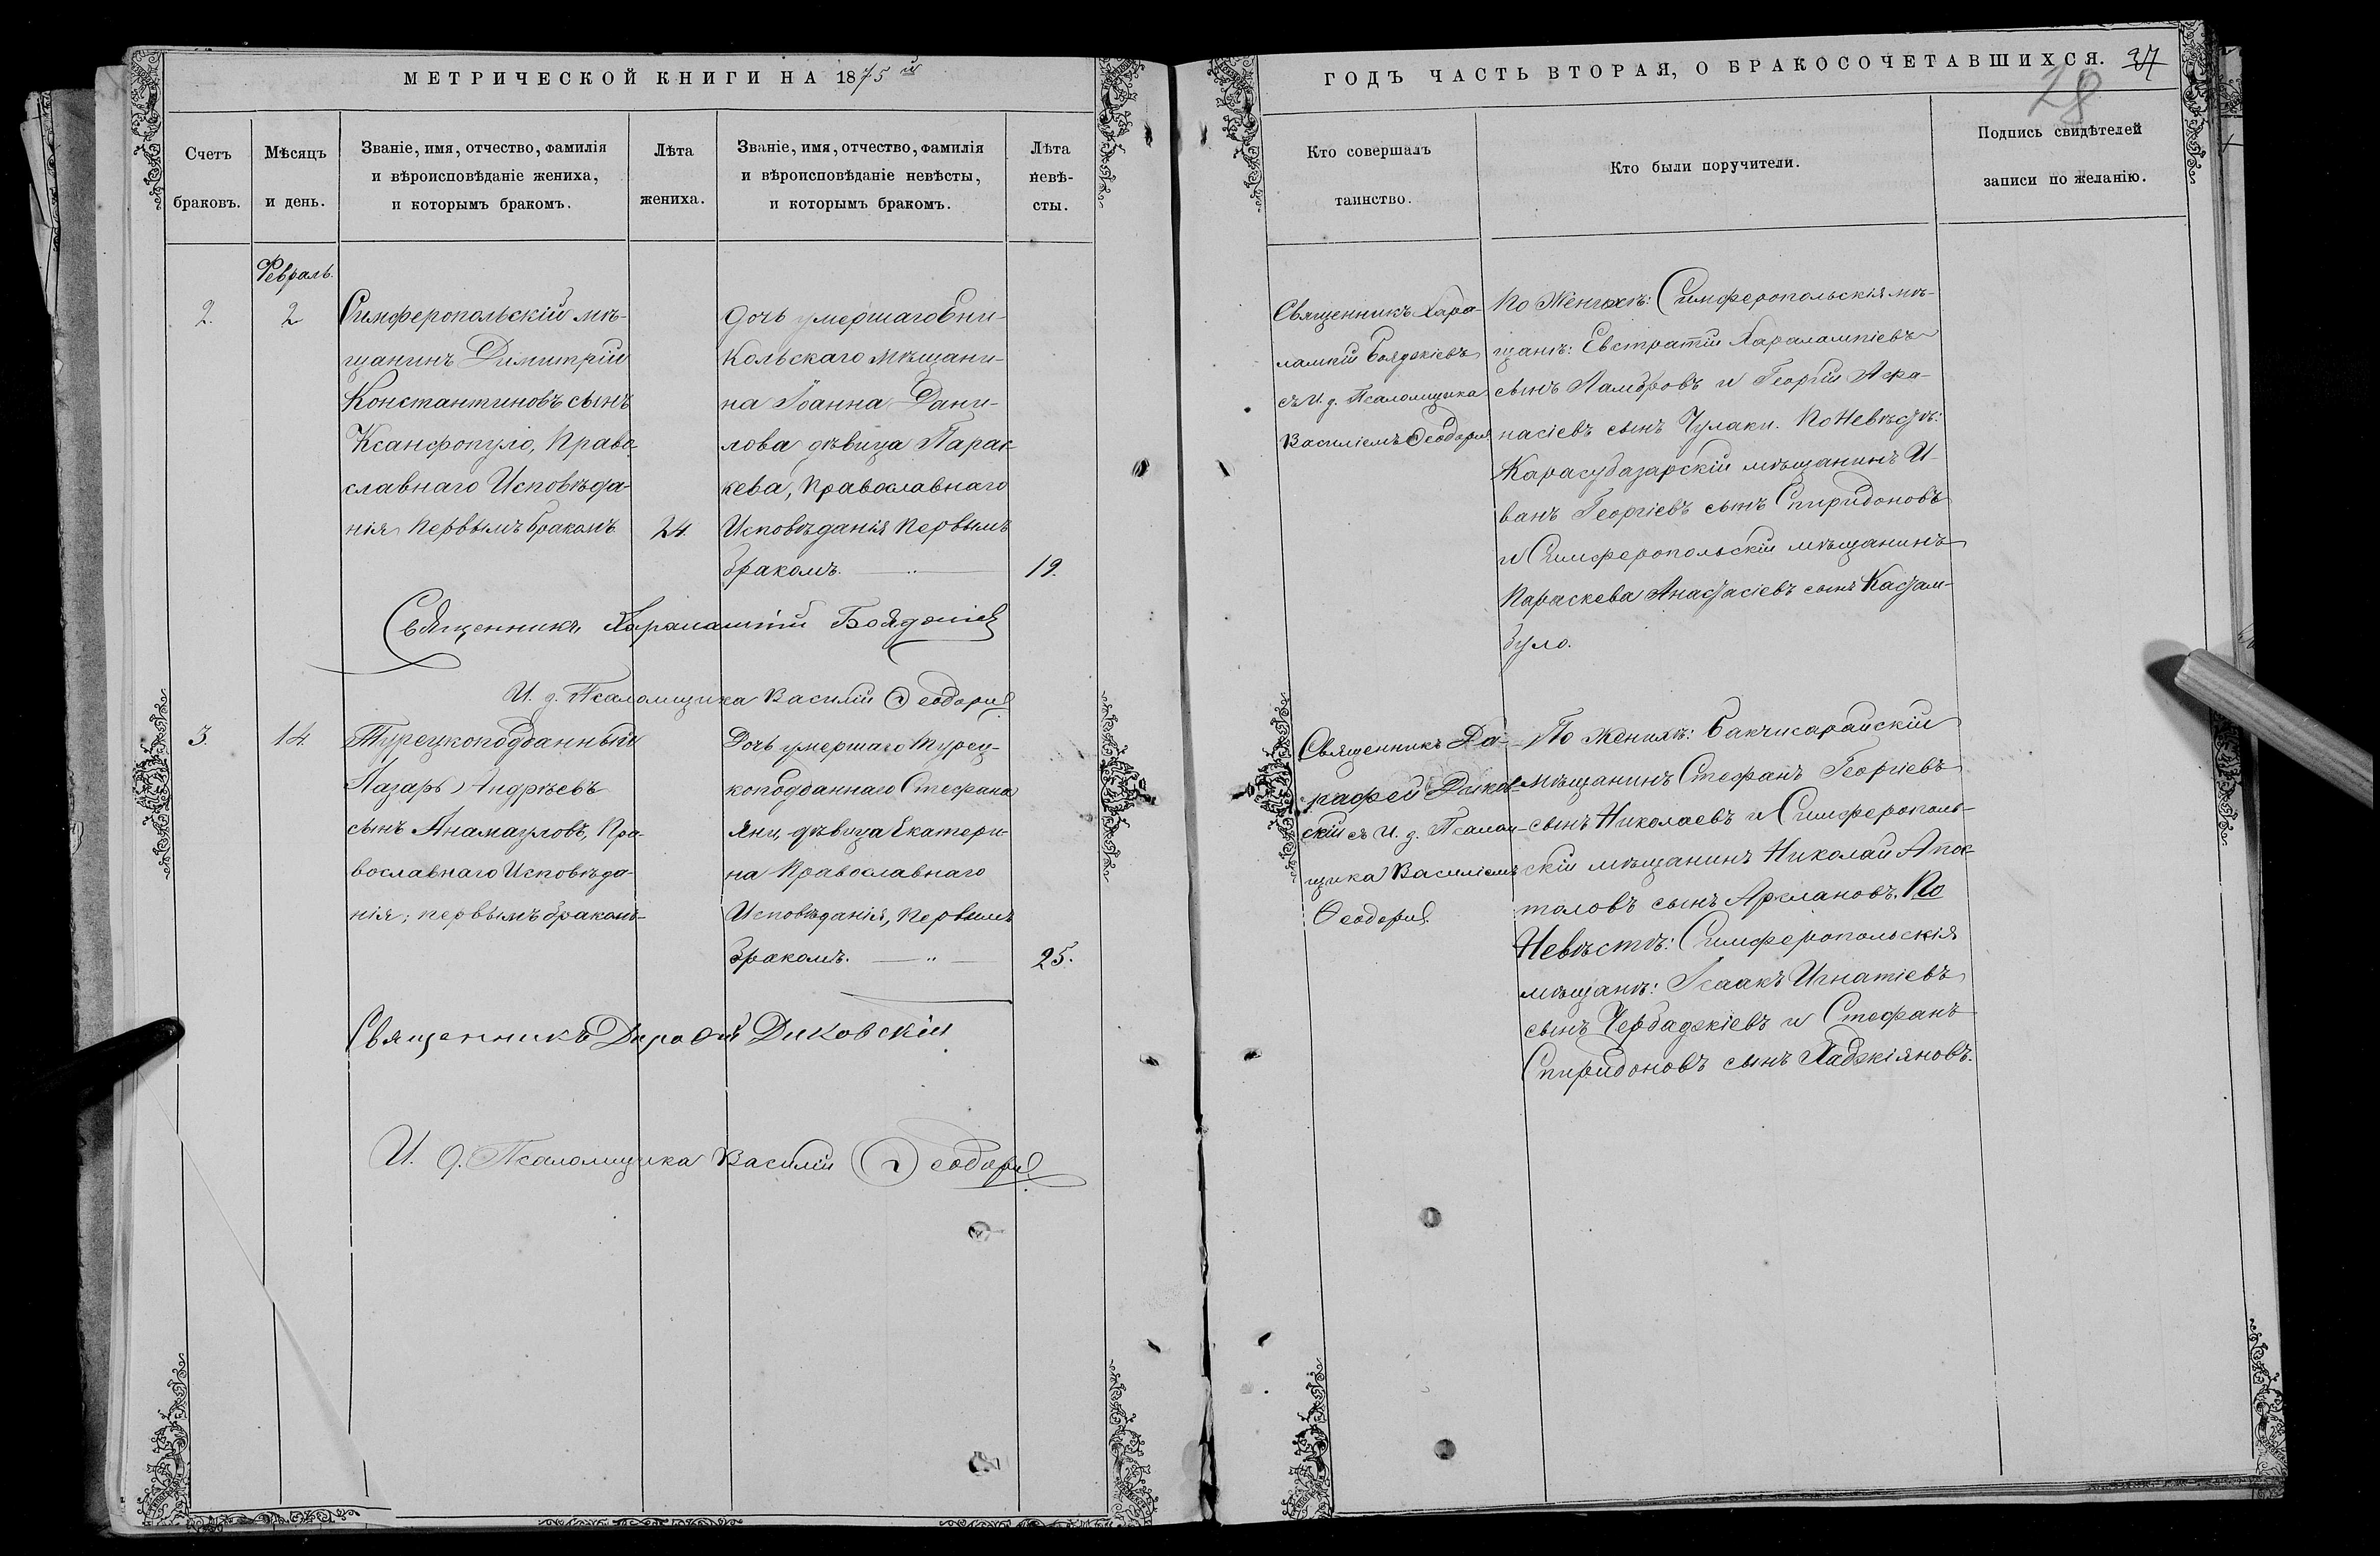 МЕТРИЧЕСКОЙ КНИГИ НА 1875й
Счетъ браковъ.
Мѣсяцъ и день.
Званіе, имя, отчество, фамилія
и вѣроисповѣданіе жениха,
и которымъ бракомъ.
Лѣта
жениха.
Званіе, имя, отчество, фамилія
и вѣроисповѣданіе невѣсты,
и которымъ бракомъ.
Лѣта
невѣ-
сты.
Февраль.
2.
2
Симферопольскій мѣ-
щанинъ Димитрій
Константиновъ сынъ
Ксанфопуло, Право-
славнаго Исповѣда-
нія первымъ бракомъ
24.
дочь умершаго Ени-
кольскаго мѣщани-
на Іоанна Дани-
лова дѣвица Парас-
кева, Православнаго
Исповѣданія первымъ
бракомъ.
19.
Священникъ Харалампій Бояджіевъ
И. д. Псаломщика Василій Ѳеодори
3.
14.
Турецкоподданный
Лазарь Андрѣевъ
сынъ Анамауловъ, Пра-
вославнаго Исповѣда-
нія, первымъ бракомъ
Дочь умершаго турец-
коподданнаго Стефана
Яни, дѣвица Екатери-
на Православнаго
Исповѣданія, первымъ
бракомъ.
25.
Священникъ Диковскій
И. д. Псаломщика Василій Ѳеодори
ГОДЪ ЧАСТЬ ВТОРАЯ, О БРАКОСОЧЕТАВШИХСЯ. 37
28
Кто совершалъ
таинство.
Кто были поручители.
Подпись свидѣтелей
записи по желанію.
Священникъ Хара-
лампій Бояджіевъ
съ И. д. Псаломщика
Василіемъ Ѳеодори
По Женихѣ: Симферопольскія мѣ-
щанѣ: Евстратій Харалампіевъ
сынъ Ламбровъ и Георгій Афа-
насіевъ сынъ Чулаки. По Невѣстѣ:
Карасубазарскій мѣщанинъ И-
ванъ Георгіевъ сынъ Спиридоновъ
и Симферопольскій мѣщанинъ
Параскева Анастасіевъ сынъ Кастам-
було.
Священникъ До-
рофей Диков-
скій съ И. д. Псалом-
щика Василіемъ
Ѳеодори
По женихѣ: Бакчисарайскій
мѣщанинъ Стефанъ Георгіевъ
сынъ Николаевъ и Симферополь-
скій мѣщанинъ Николай Апос-
толовъ сынъ Арслановъ. По
Невѣстѣ: Симферопольскія
мѣщанѣ: Исаакъ Игнатіевъ
сынъ Чербаджіевъ и Стефанъ
Спиридоновъ сынъ Хаджіяновъ.